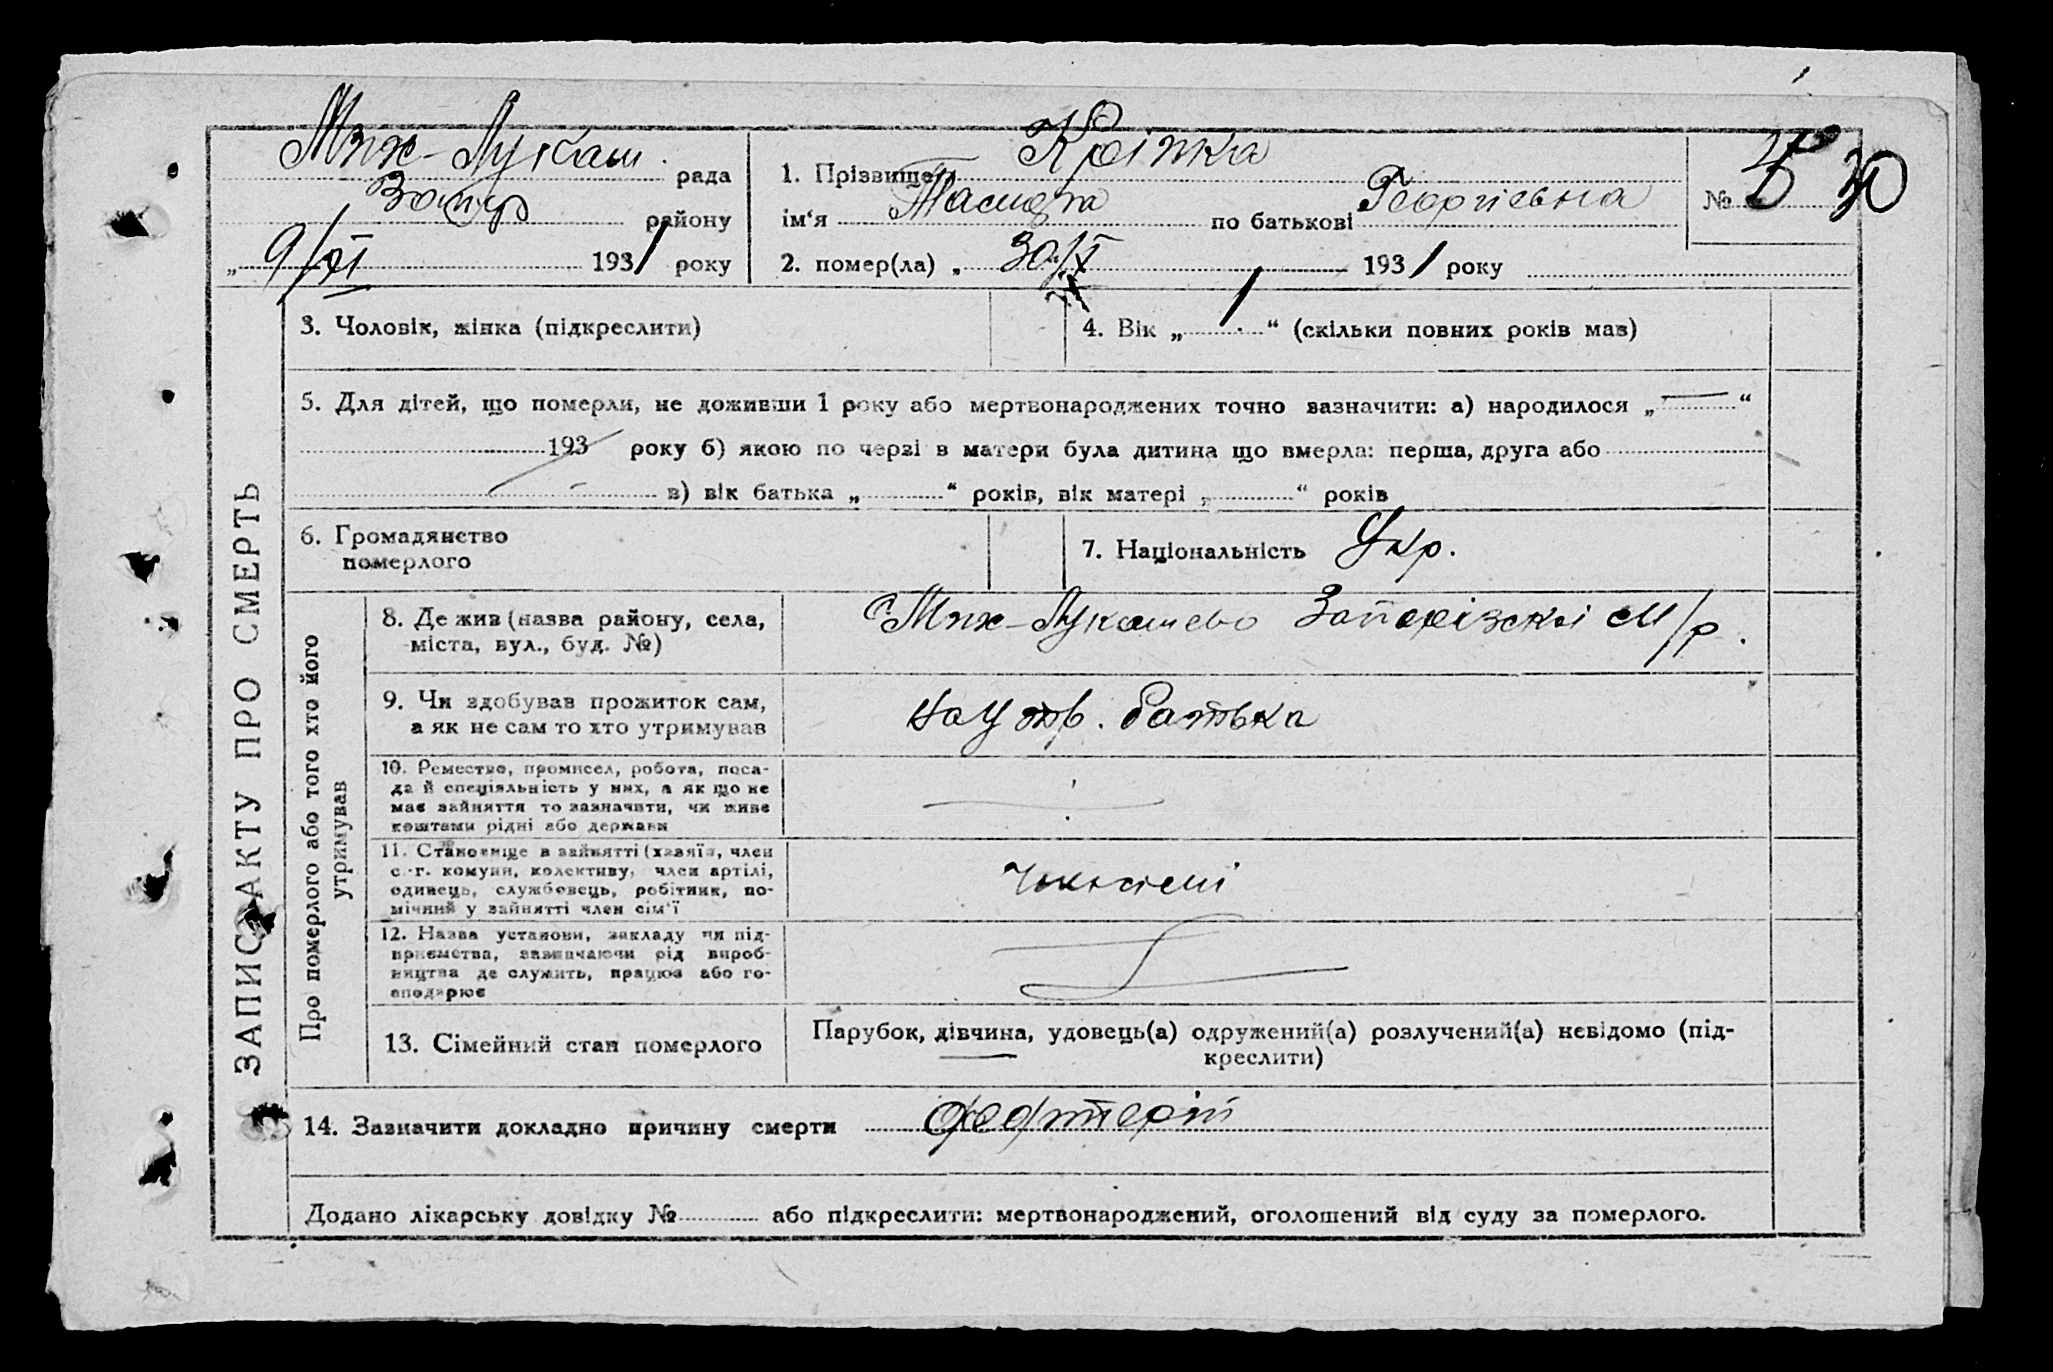 Мих-Лукаш. рада
Запор району
„ 9/XI 1931 року
1. Прізвище Кріпка
ім‘я по батькові Георгієвна
№ 30
2. помер(ла) „ 30/X 1931 року
ЗАПИС АКТУ ПРО СМЕРТЬ
3. Чоловік, жінка (підкреслити)
4. Вік „ 1 “ (скільки повних років мав)
5. Для дітей, що померли, не доживши 1 року або мертвонароджених точно зазначити: а) народилося „ — “
193 року б) якою по черзі в матери була дитина що вмерла: перша, друга або
в) вік батька „ “ років, вік матері „ “ років
6. Громадянство
померлого
7. Національність Укр.
Про померлого або того хто його
утримував
8. Де жив (назва району, села,
міста, вул., буд. №)
Мих-Лукашево Запорізскі м/р.
9. Чи здобував прожиток сам,
а як не сам то хто утримував
На утр. батька
10. Ремество, промисел, робота, поса-
да й спеціяльність у них, а як що не
має зайняття то зазначити, чи живе
коштами рідні або держави
11. Становище в зайнятті (хазяїн, член
с.-г. комуни, колективу, член артілі,
одинець, службовець, робітник, по-
мічний у зайнятті член сім‘ї
12. Назва установи, закладу чи під-
приємства, зазначаючи рід вироб-
ництва де служить, працює або го-
сподарює
13. Сімейний стан померлого
Парубок, дівчина, удовець(а) одружений(а) розлучений(а) невідомо (під-
креслити)
14. Зазначити докладно причину смерти
Додано лікарську довідку № або підкреслити: мертвонароджений, оголошений від суду за померлого.